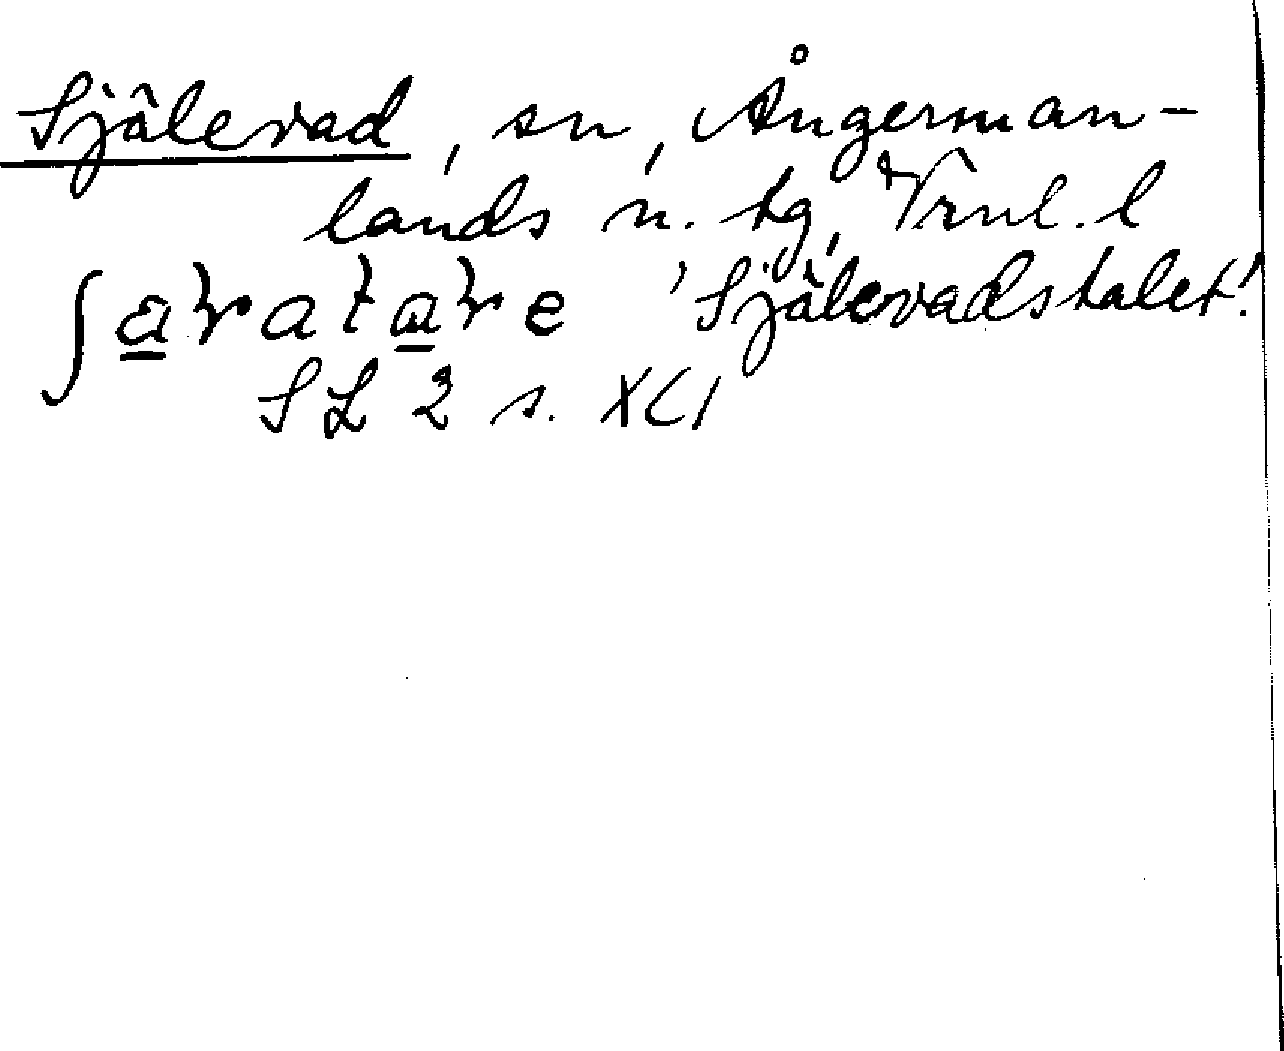 Själevad, sn, Ångerman-
lands n. tg, Vrnl. l
'Själevadstalet'.
SL 2 s. XCI